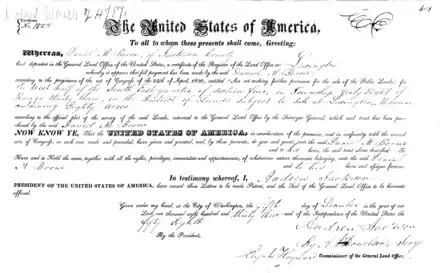 The United States of America,
To all to whom these presents shall come, Greeting:
Whereas, Daniel M. Boone, of Jackson County
has deposited in the General Land Office of the United States, a certificate of the Register of the Land Office at Lexington
whereby it appears that full payment has been made by the said Daniel M. Boone
according to the provisions of the act of Congress of the 24th of April, 1820, entitled "An act making further provision for the sale of the Public Lands," for
the West half of the South East quarter of section four, in Township forty Eight of
Range thirty three, in the District of Lands subject to sale at Lexington, Missouri
containing Eighty acres
according to the official plat of the survey of the said Lands, returned to the General Land Office by the Surveyor General, which said tract has been purchased by the said Daniel M. Boone
NOW KNOW YE, That the UNITED STATES OF AMERICA, in consideration of the premises, and in conformity with the several
acts of Congress, in such case made and provided, have given and granted, and by these presents, do give and grant, unto the said Daniel M. Boone
and to his heirs, the said tract above described: To
Have and to Hold the same, together with all the rights, privileges, immunities and appurtenances, of whatsoever nature thereunto belonging, unto the said Daniel
M. Boone and to his heirs and assigns forever.
In testimony whereof, I, Andrew Jackson
PRESIDENT OF THE UNITED STATES OF AMERICA, have caused these Letters to be made Patent, and the Seal of the General Land Office to be hereunto
affixed.
Given under my hand, at the City of Washington, the fifth day of
Lord, one thousand eight hundred and thirty three and of the Independence of the United States the
fifty Eighth
Andrew Jackson
By the President,
By A. J. Donelson, Secy
Commissioner of the General Land Office.